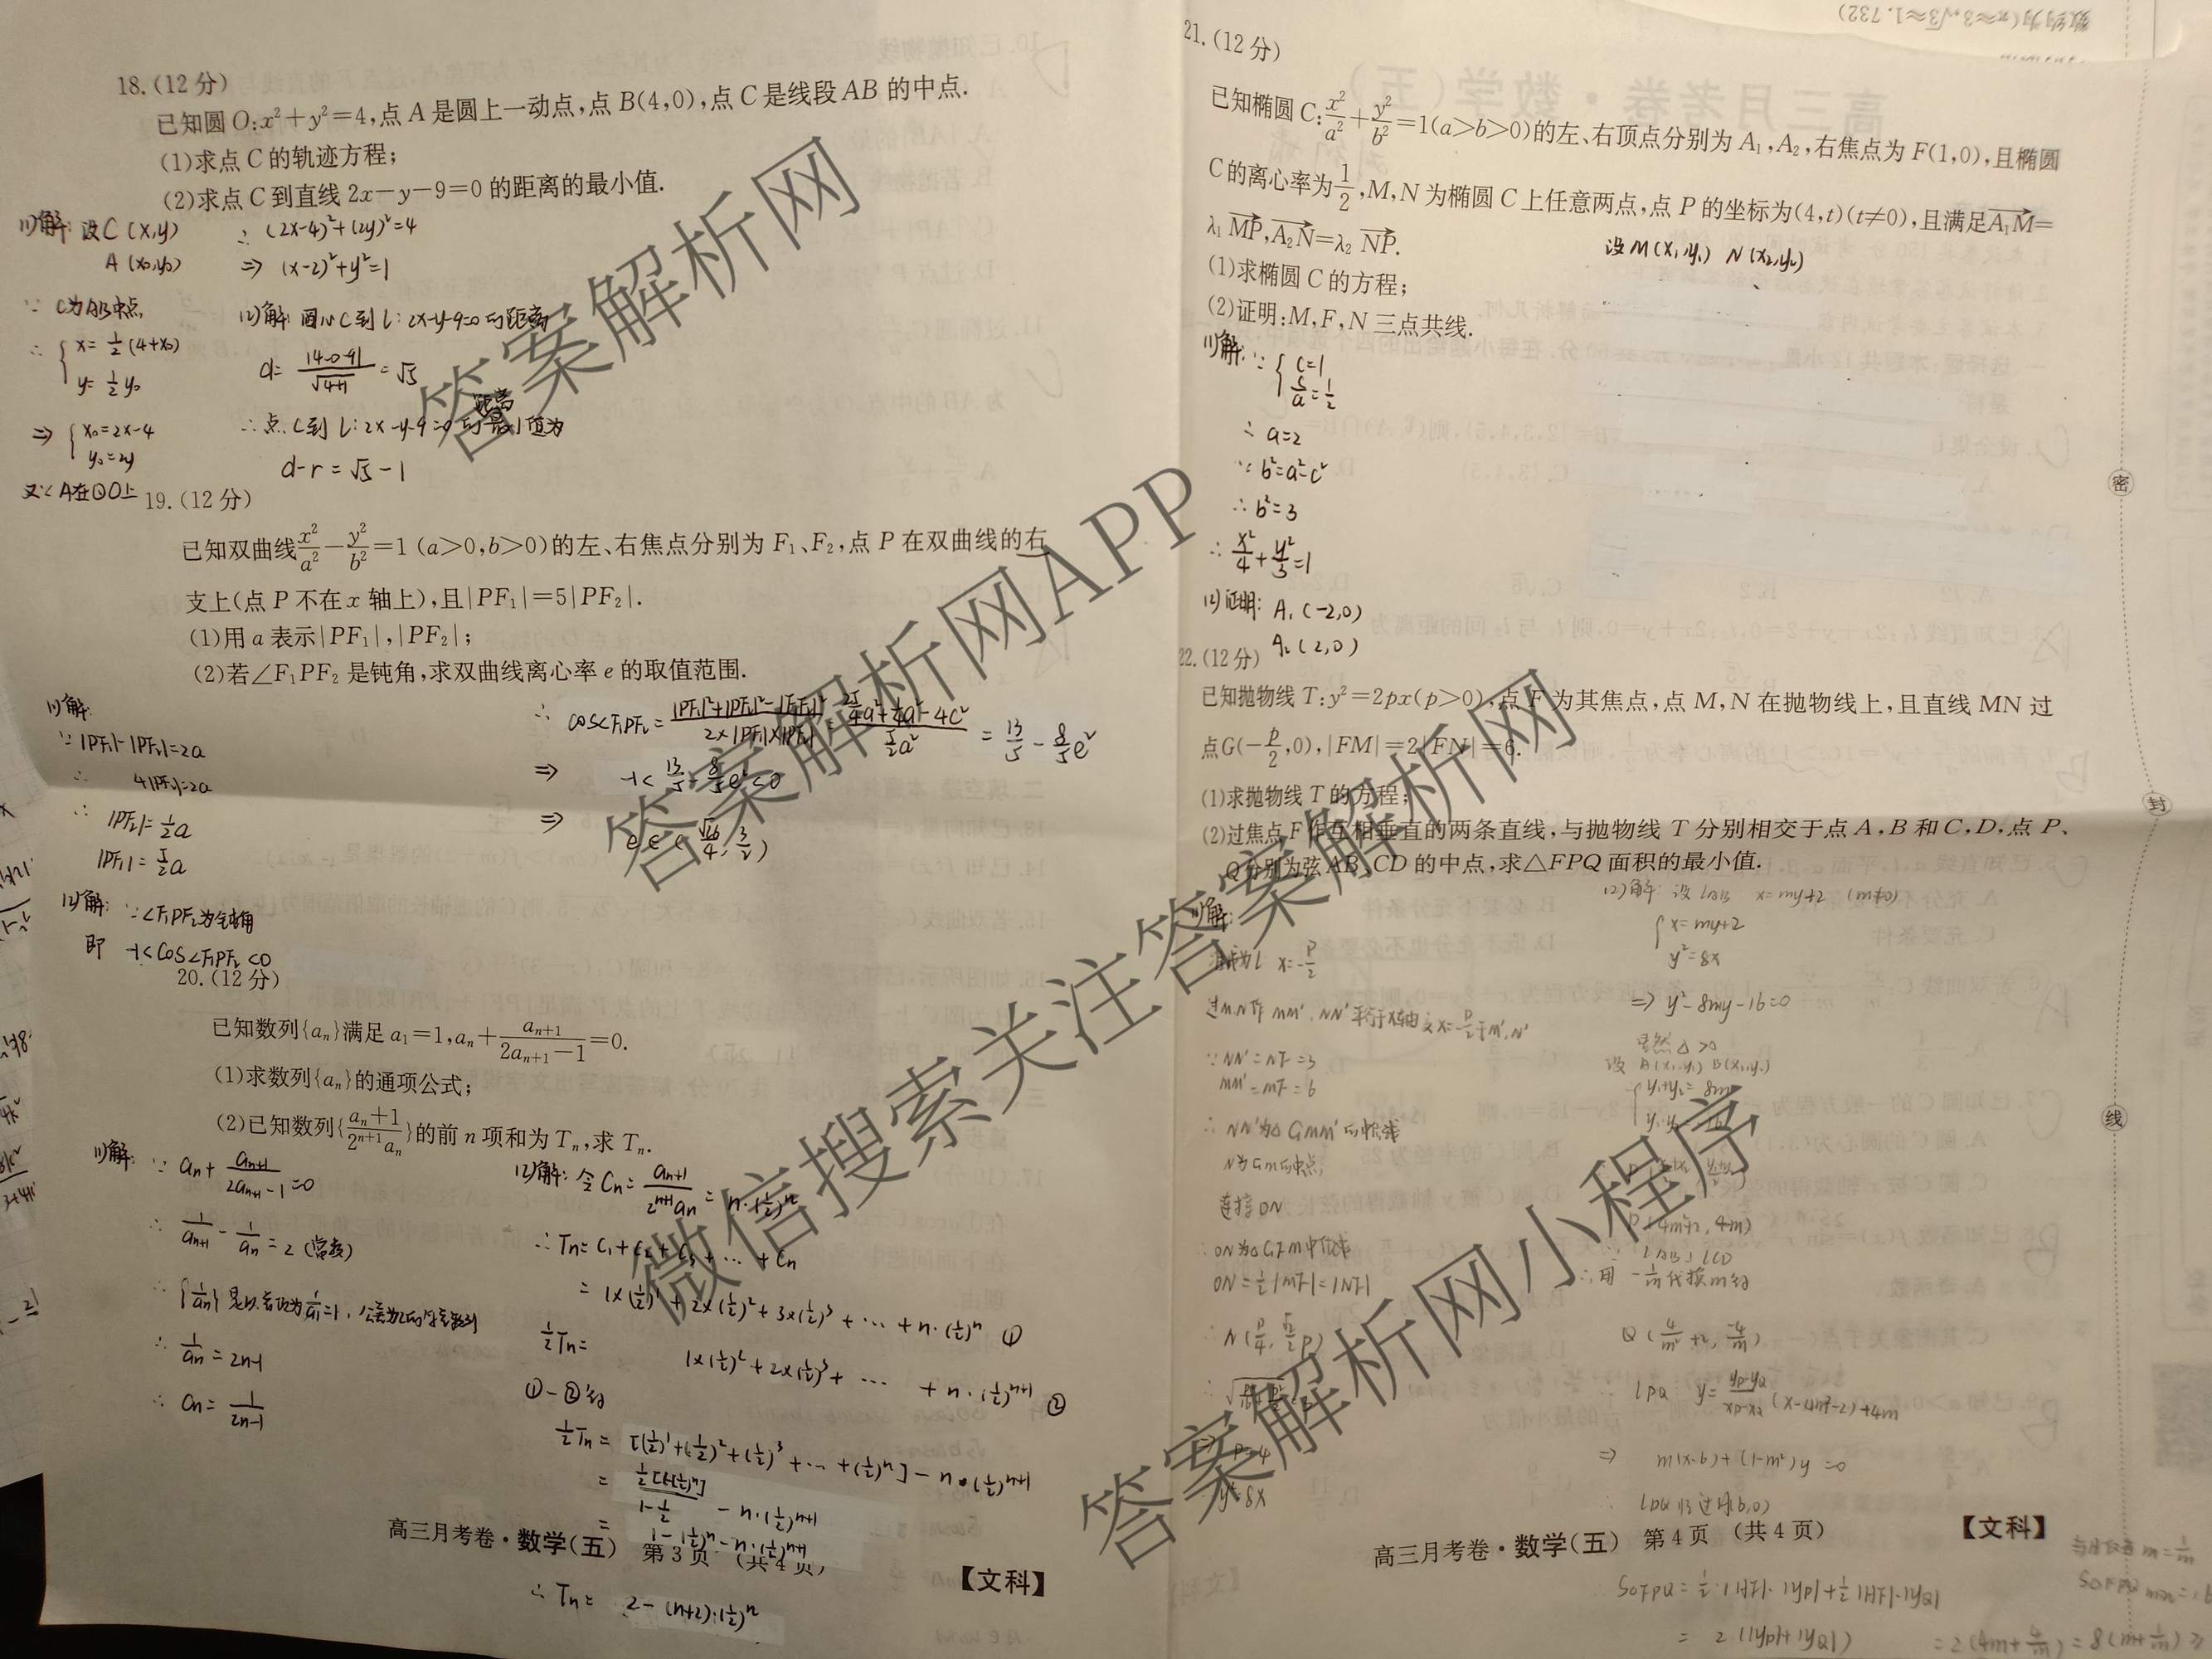 18.(12分)
已知圆O:x²+y²=4,点A是圆上一动点,点B(4,0),点C是线段AB的中点.
(1)求点C的轨迹方程;
(2)求点C到直线2x-y-9=0的距离的最小值.
(1)解:设C(x,y)
A(x₀,y₀)
∵ C为AB中点,
∴ { x=½(4+x₀)
y=½y₀
⇒ { x₀=2x-4
y₀=2y
又∵A在⊙O上
∴ (2x-4)²+(2y)²=4
⇒ (x-2)²+y²=1
(2)解:圆心C到l:2x-y-9=0的距离
d=|4-0-9|/√(4+1)=√5
∴点C到l:2x-y-9=0的距离最小值为
d-r=√5-1
19.(12分)
已知双曲线x²/a²-y²/b²=1 (a>0,b>0)的左、右焦点分别为F₁、F₂,点P在双曲线的右
支上(点P不在x轴上),且|PF₁|=5|PF₂|.
(1)用a表示|PF₁|,|PF₂|;
(2)若∠F₁PF₂是钝角,求双曲线离心率e的取值范围.
(1)解:
∵|PF₁|-|PF₂|=2a
∴ 4|PF₂|=2a
∴ |PF₂|=½a
|PF₁|=5/2a
(2)解: ∵∠F₁PF₂为钝角
即 -1<cos∠F₁PF₂<0
∴ cos∠F₁PF₂=(|PF₁|²+|PF₂|²-|F₁F₂|²)/(2×|PF₁|×|PF₂|)=(25/4a²+¼a²-4c²)/(5/2a²)=13/5-8/5e²
⇒ -1<13/5-8/5e²<0
⇒ e∈(√26/4,3/2)
20.(12分)
已知数列{aₙ}满足a₁=1,aₙ+aₙ₊₁/(2aₙ₊₁-1)=0.
(1)求数列{aₙ}的通项公式;
(2)已知数列{(aₙ+1)/(2ⁿ⁺¹aₙ)}的前n项和为Tₙ,求Tₙ.
(1)解: ∵ aₙ+aₙ₊₁/(2aₙ₊₁-1)=0
∴ 1/aₙ₊₁-1/aₙ=2(常数)
∴ {1/aₙ}是以首项为1/a₁=1,公差为2的等差数列
∴ 1/aₙ=2n-1
∴ aₙ=1/(2n-1)
(2)解:令Cₙ=(aₙ+1)/(2ⁿ⁺¹aₙ)=n·(½)ⁿ
∴Tₙ=C₁+C₂+C₃+⋯+Cₙ
=1×(½)¹+2×(½)²+3×(½)³+⋯+n·(½)ⁿ ①
½Tₙ= 1×(½)²+2×(½)³+⋯+n·(½)ⁿ⁺¹ ②
①-②得
½Tₙ=[(½)¹+(½)²+(½)³+⋯+(½)ⁿ]-n·(½)ⁿ⁺¹
=½[1-(½)ⁿ]/(1-½)-n·(½)ⁿ⁺¹
=1-(½)ⁿ-n·(½)ⁿ⁺¹
∴Tₙ=2-(n+2)·(½)ⁿ
高三月考卷·数学(五) 第3页 (共4页)
【文科】
21.(12分)
已知椭圆C:x²/a²+y²/b²=1(a>b>0)的左、右顶点分别为A₁,A₂,右焦点为F(1,0),且椭圆
C的离心率为½,M,N为椭圆C上任意两点,点P的坐标为(4,t)(t≠0),且满足A₁M=
λ₁MP,A₂N=λ₂NP.
设M(x₁,y₁) N(x₂,y₂)
(1)求椭圆C的方程;
(2)证明:M,F,N三点共线.
(1)解:∵ { c=1
c/a=½
∴ a=2
∵ b²=a²-c²
∴ b²=3
∴ x²/4+y²/3=1
(2)证明: A₁(-2,0)
A₂(2,0)
22.(12分)
已知抛物线T:y²=2px(p>0),点F为其焦点,点M,N在抛物线上,且直线MN过
点G(-p/2,0),|FM|=2|FN|=6.
(1)求抛物线T的方程;
(2)过焦点F作互相垂直的两条直线,与抛物线T分别相交于点A,B和C,D,点P、
Q分别为弦AB、CD的中点,求△FPQ面积的最小值.
(1)解:
准线为l x=-p/2
过M,N作MM',NN'平行于x轴交x=-p/2于M',N'
∵NN'=NF=3
MM'=MF=6
∴NN'为△GMM'的中位线
N为GM的中点,
连接ON
∴ON为△GFM中位线
ON=½|MF|=|NF|
∴N(p/4,√2/2p)
p=4
y²=8x
(2)解:设lAB x=my+2 (m≠0)
{ x=my+2
y²=8x
⇒ y²-8my-16=0
显然△>0
设A(x₁,y₁) B(x₂,y₂)
{ y₁+y₂=8m
P(4m²+2,4m)
∵ lAB⊥lCD
∴用-1/m代换m得
Q(4/m²+2,-4/m)
lPQ y=(yP-yQ)/(xP-xQ)(x-4m²-2)+4m
⇒ m(x-6)+(1-m²)y=0
∴ lPQ恒过H(6,0)
高三月考卷·数学(五) 第4页 (共4页)
【文科】
S△FPQ=½·|HF|·|yP|+½|HF|·|yQ|
=2(|yP|+|yQ|)
=2(4m+4/m)=8(m+1/m)≥
密
封
线
答案解析网
答案解析网APP
微信搜索关注答案解析网
答案解析网小程序